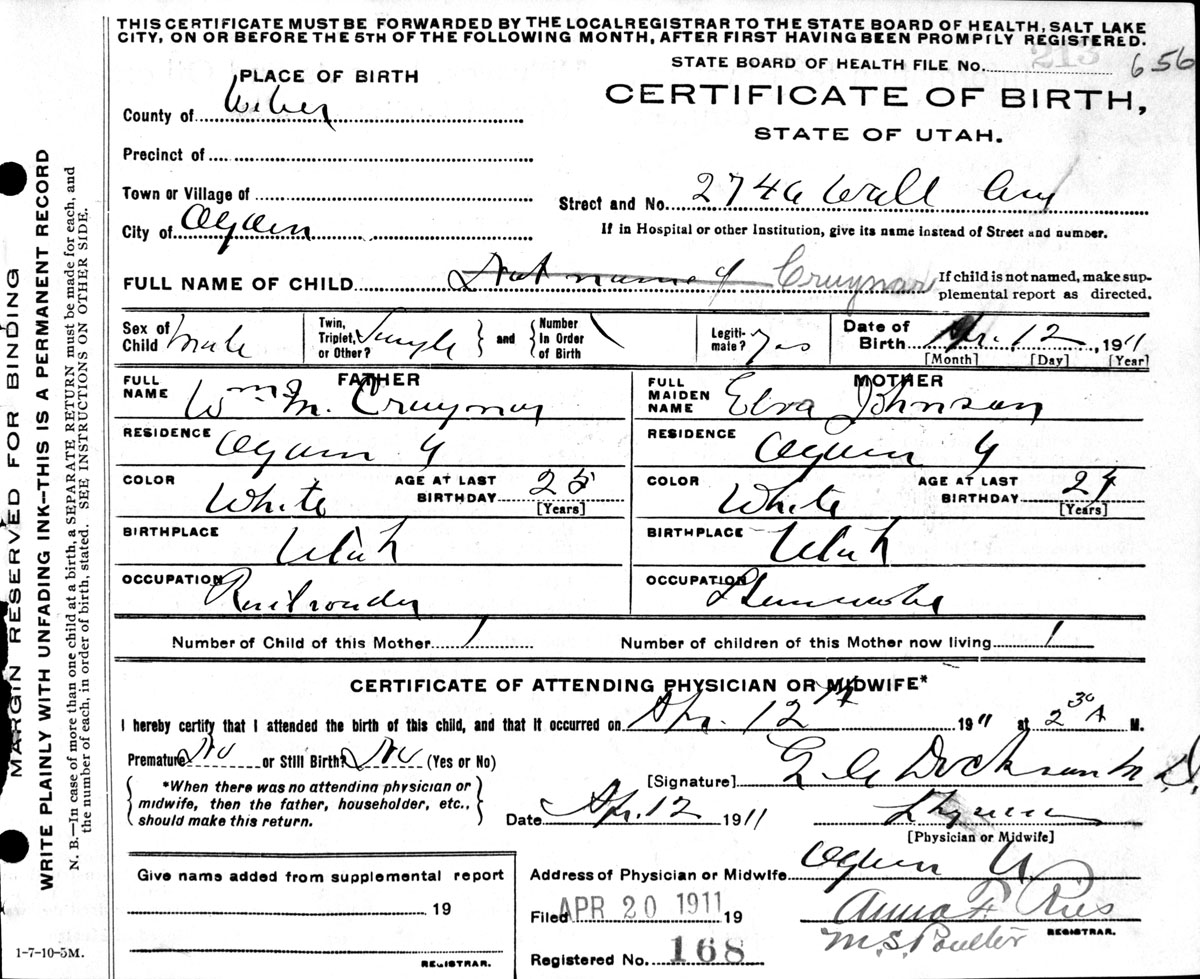 THIS CERTIFICATE MUST BE FORWARDED BY THE LOCAL REGISTRAR TO THE STATE BOARD OF HEALTH, SALT LAKE
CITY, ON OR BEFORE THE 5TH OF THE FOLLOWING MONTH, AFTER FIRST HAVING BEEN PROMPTLY REGISTERED.
STATE BOARD OF HEALTH FILE NO. 213 656
PLACE OF BIRTH
CERTIFICATE OF BIRTH,
STATE OF UTAH.
County of Weber
Precinct of
Town or Village of
Street and No. 2746 Wall Ave
City of Ogden
If in Hospital or other Institution, give its name instead of Street and number.
FULL NAME OF CHILD Not named
If child is not named, make sup-
plemental report as directed.
Sex of Child Male
Twin, Triplet, or Other? Single
and
Number In Order of Birth
Legiti-mate? Yes
Date of Birth Apr. 12, 1911
[Month] [Day] [Year]
FATHER
FULL NAME Wm M.
RESIDENCE Ogden U
COLOR White
AGE AT LAST BIRTHDAY 25
[Years]
BIRTHPLACE Utah
OCCUPATION Railroader
MOTHER
FULL MAIDEN NAME Elva Johnson
RESIDENCE Ogden U
COLOR White
AGE AT LAST BIRTHDAY
[Years]
BIRTHPLACE Utah
OCCUPATION Housewife
Number of Child of this Mother 1
Number of children of this Mother now living 1
CERTIFICATE OF ATTENDING PHYSICIAN OR MIDWIFE*
I hereby certify that I attended the birth of this child, and that it occurred on Apr. 12th 1911 at 2 30 A M.
Premature? No or Still Birth? No (Yes or No)
*When there was no attending physician or
midwife, then the father, householder, etc.,
should make this return.
[Signature] Dickson M D.
Date Apr. 12 1911
[Physician or Midwife]
Give name added from supplemental report
19
REGISTRAR.
Address of Physician or Midwife Ogden U.
Filed APR 20 1911 19
Anna F Ries
M.S. Poulter
REGISTRAR.
Registered No. 168
1-7-10-5M.
MARGIN RESERVED FOR BINDING
WRITE PLAINLY WITH UNFADING INK--THIS IS A PERMANENT RECORD
N. B.—In case of more than one child at a birth, a SEPARATE RETURN must be made for each, and
the number of each, in order of birth, stated. SEE INSTRUCTIONS ON OTHER SIDE.